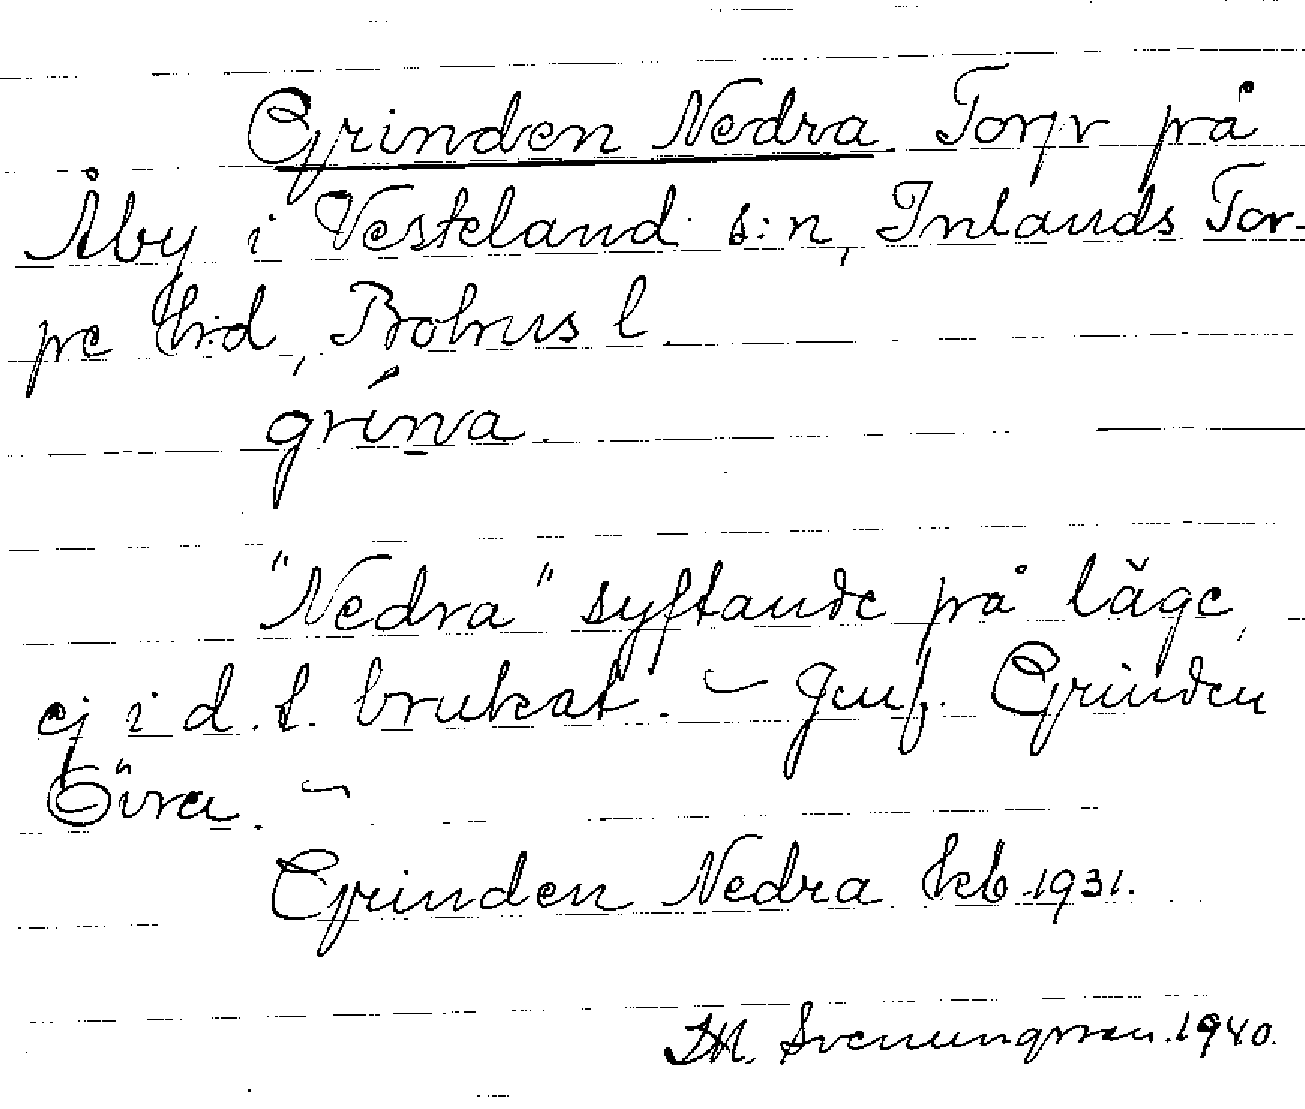 Grinden Nedra. Torp på
Åby i Vesteland s:n, Inlands Tor-
pe hd, Bohus l
grinna.
"Nedra" syftande på läge,
ej i d. t. brukat. – Jmf. Grinden
Övra. –
Grinden Nedra kb 1931.
Svenungsson. 1940.